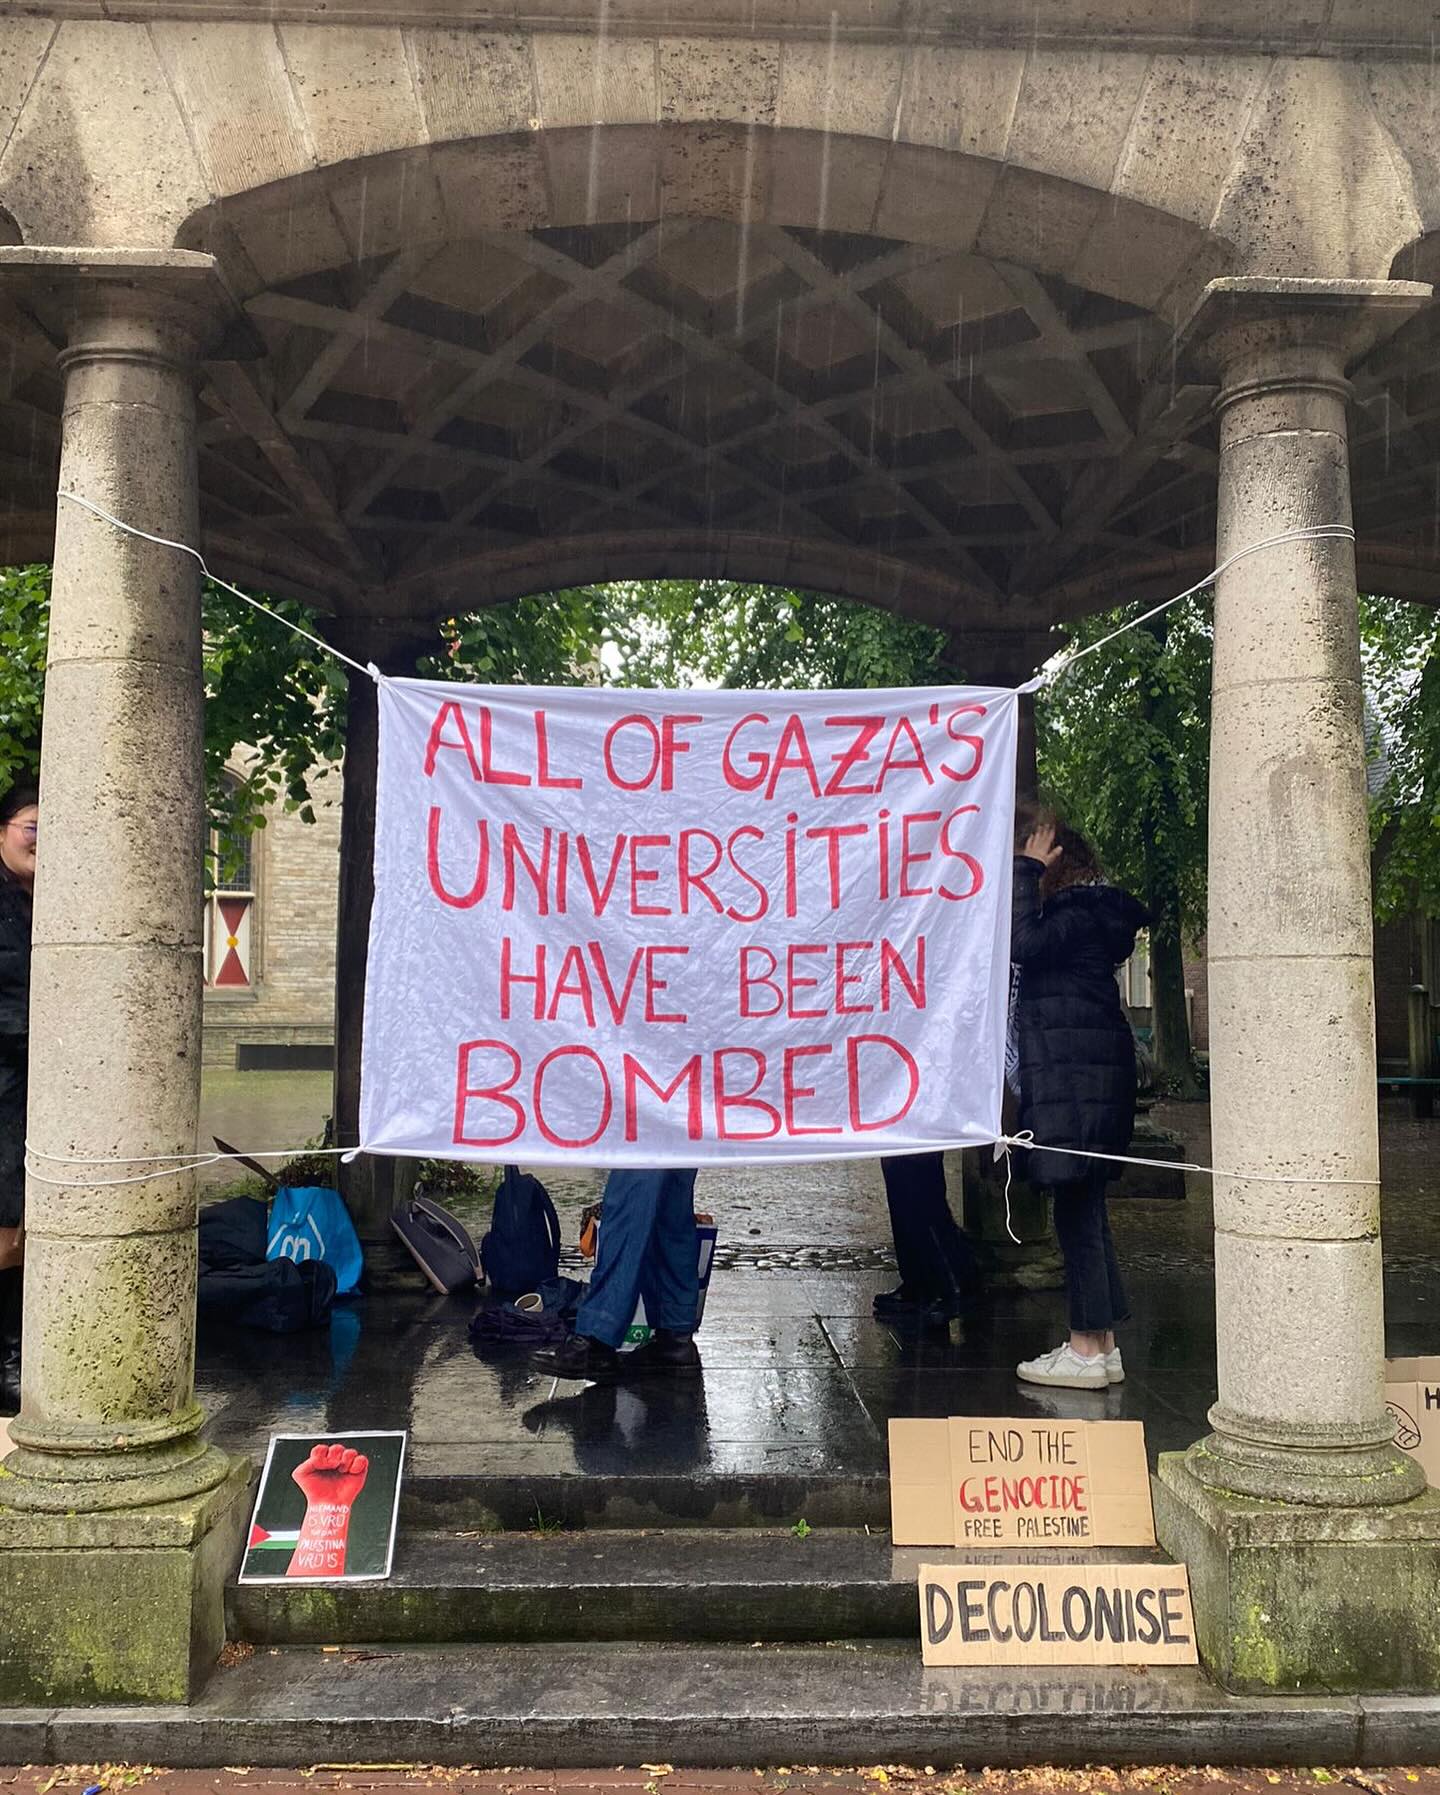 ALL OF GAZA'S
UNIVERSITIES
HAVE BEEN
BOMBED
NIEMAND
IS VRIJ
TOTDAT
PALESTINA
VRIJ IS
END THE
GENOCIDE
FREE PALESTINE
DECOLONISE
H